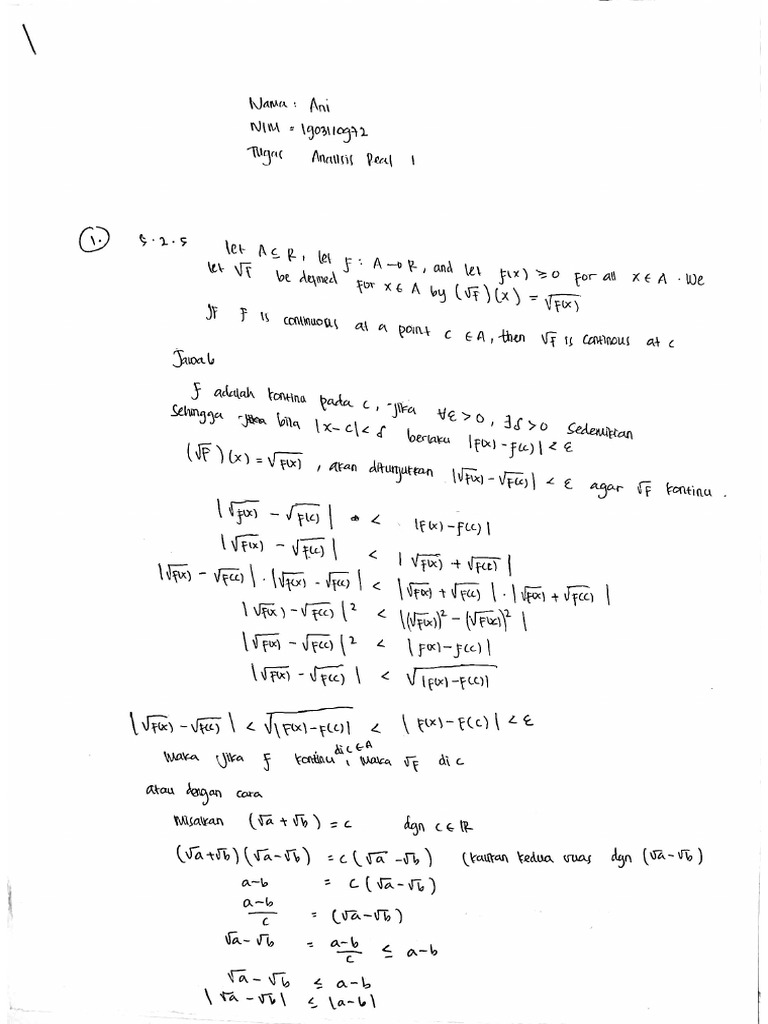 Nama : Ani
NIM = 1903110972
Tugas Analisis Real 1
1. 5.2.5 let A ⊆ R, let f : A → R, and let f(x) ≥ 0 for all x ∈ A. We
let √f be defined for x ∈ A by (√f)(x) = √f(x)
If f is continuous at a point c ∈ A, then √f is continous at c
Jawab
f adalah kontinu pada c, jika ∀ε > 0, ∃δ > 0 sedemikian
Sehingga bila |x - c| < δ berlaku |f(x) - f(c)| < ε
(√f)(x) = √f(x), akan ditunjukkan |√f(x) - √f(c)| < ε agar √f kontinu.
|√f(x) - √f(c)| < |f(x) - f(c)|
|√f(x) - √f(c)| < |√f(x) + √f(c)|
|√f(x) - √f(c)| · |√f(x) - √f(c)| < |√f(x) + √f(c)| · |√f(x) + √f(c)|
|√f(x) - √f(c)|² < |(√f(x))² - (√f(x))²|
|√f(x) - √f(c)|² < |f(x) - f(c)|
|√f(x) - √f(c)| < √|f(x) - f(c)|
|√f(x) - √f(c)| < √|f(x) - f(c)| < |f(x) - f(c)| < ε
Maka jika f kontinu di c ∈ A, maka √f di c
atau dengan cara
Misalkan (√a + √b) = c dgn c ∈ IR
(√a + √b)(√a - √b) = c(√a - √b) (kalikan kedua ruas dgn (√a - √b)
a - b = c(√a - √b)
a-b/c = (√a - √b)
√a - √b = a-b/c ≤ a - b
√a - √b ≤ a - b
|√a - √b| ≤ |a - b|